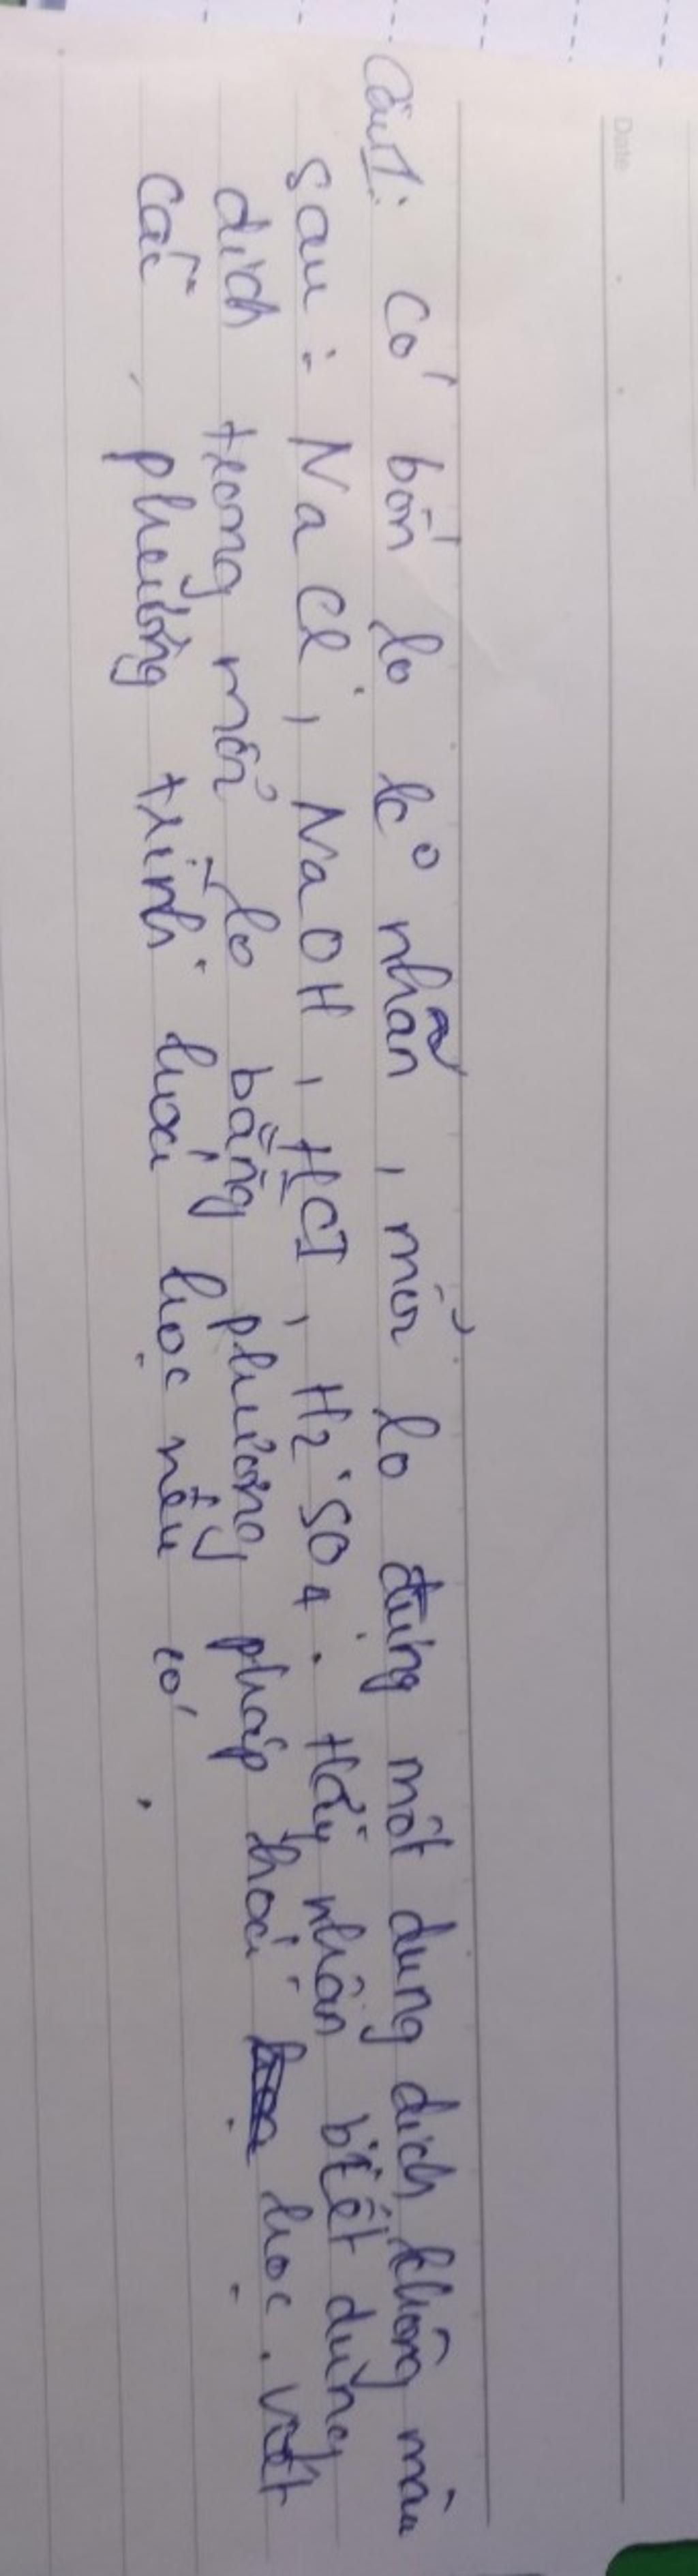 Date
Câu 1: Có bốn lọ k° nhãn, mỗi lọ đựng một dung dịch không màu
sau: NaCl, NaOH, HCl, H2SO4. Hãy nhận biết dung
dịch trong mỗi lọ bằng phương pháp hoá học. Viết
các phương trình hoá học nếu có.